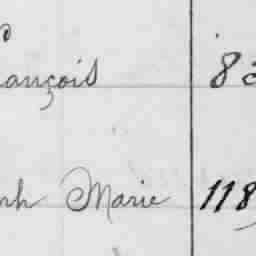 ançois 8
ph Marie 118